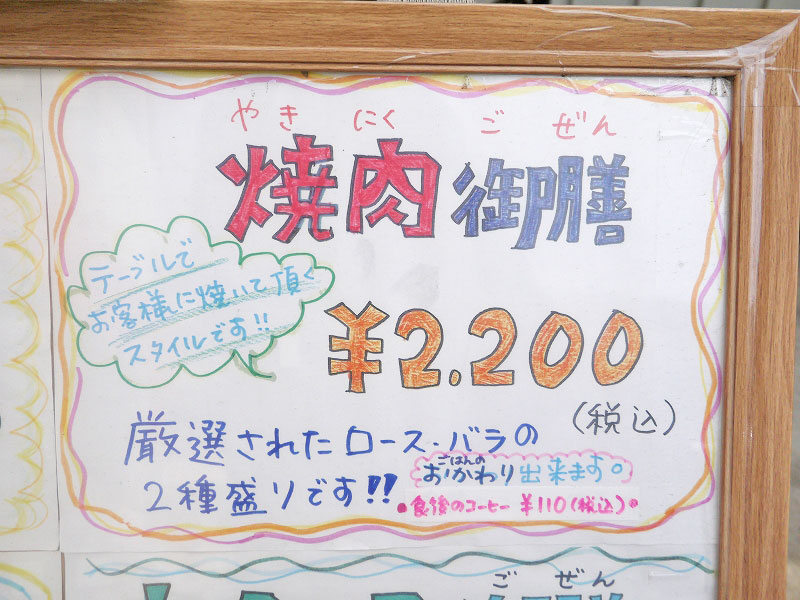 やき にく ご ぜん
焼肉御膳
テーブルで
お客様に焼いて頂く
スタイルです!!
¥2.200
(税込)
厳選されたロース・バラの
2種盛りです!!
ごはんの
おかわり出来ます。
・食後のコーヒー ¥110(税込)・
ご ぜん